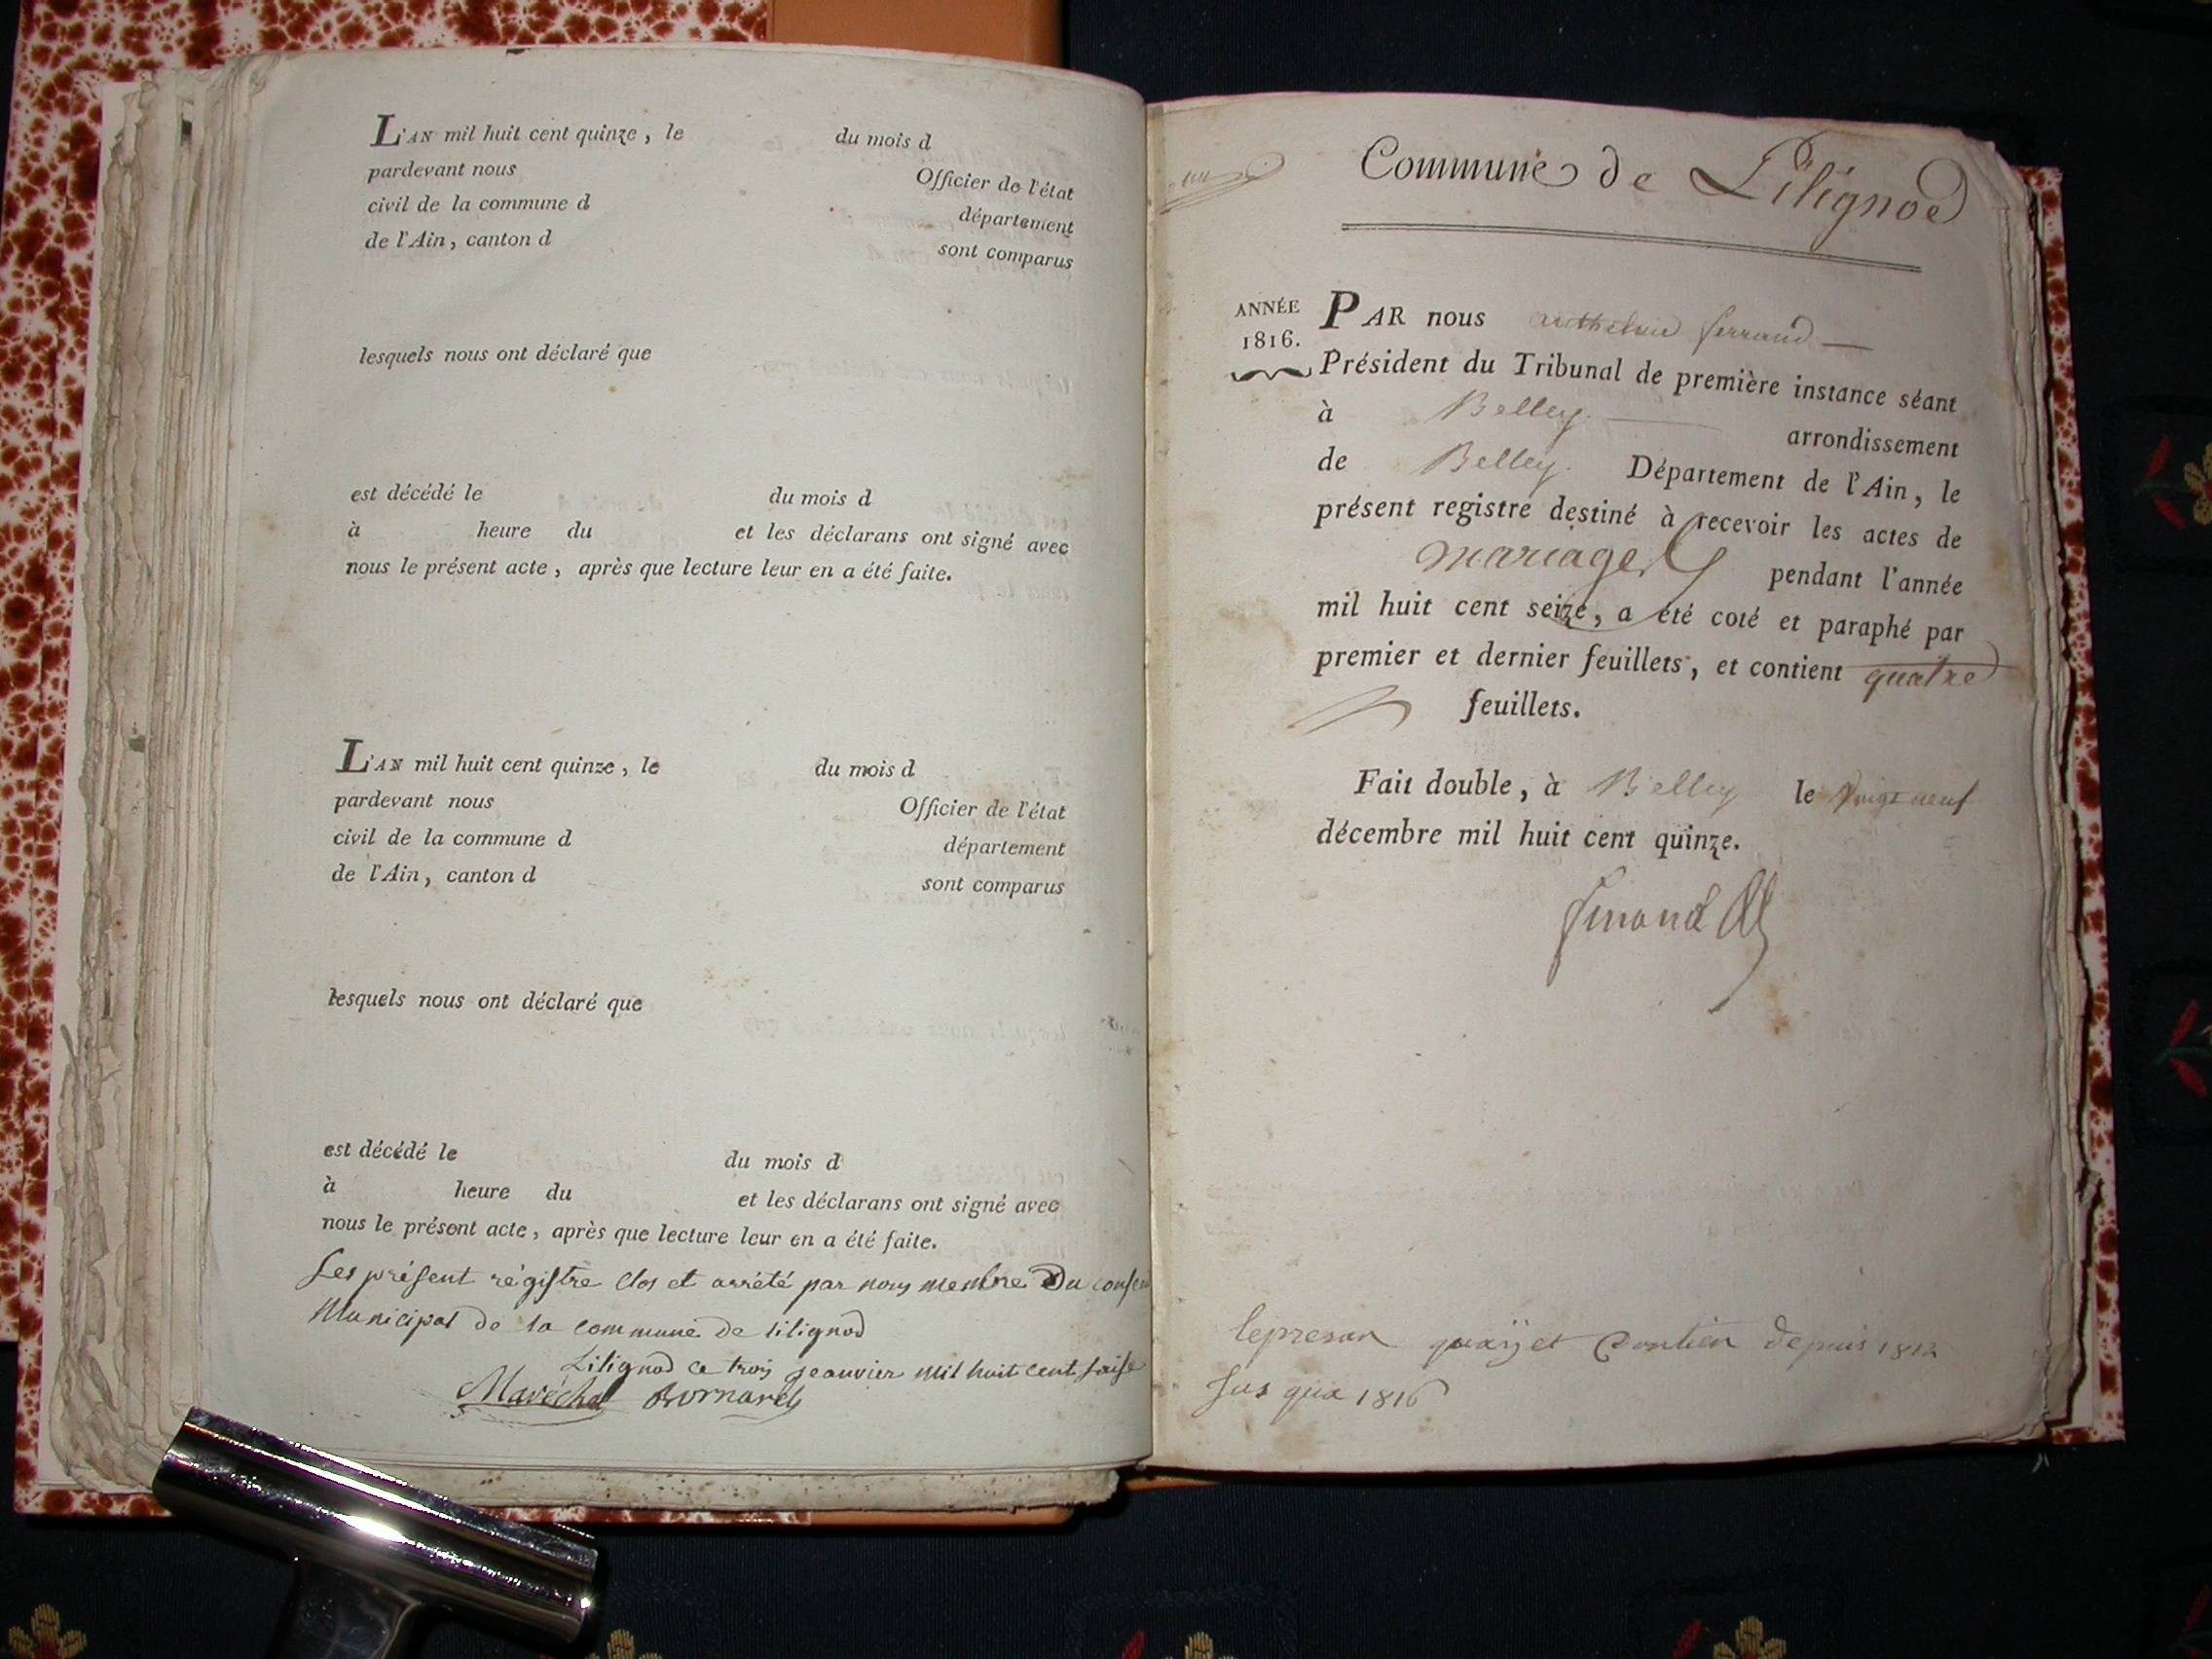 L'AN mil huit cent quinze, le du mois d
pardevant nous Officier de l'état
civil de la commune d département
de l'Ain, canton d sont comparus
lesquels nous ont déclaré que
est décédé le du mois d
à heure du et les déclarans ont signé avec
nous le présent acte, après que lecture leur en a été faite.
L'AN mil huit cent quinze, le du mois d
pardevant nous Officier de l'état
civil de la commune d département
de l'Ain, canton d sont comparus
lesquels nous ont déclaré que
est décédé le du mois d
à heure du et les déclarans ont signé avec
nous le présent acte, après que lecture leur en a été faite.
Les présent régistre clos et arrété par nous membre Du conseil
Municipal de la commune de lilignod
Lilignod ce trois jeanvier mil huit cent saise
Maréchal Bornarel
Commune de Lilignod
ANNÉE
1816.
PAR nous anthelme ferrand
Président du Tribunal de première instance séant
à Belley. arrondissement
de Belley. Département de l'Ain, le
présent registre destiné à recevoir les actes de
mariages pendant l'année
mil huit cent seize, a été coté et paraphé par
premier et dernier feuillets, et contient quatre
feuillets.
Fait double, à Belley le vingt neuf
décembre mil huit cent quinze.
ferrand
lepresan et Contien depuis 1812
Jus qua 1816